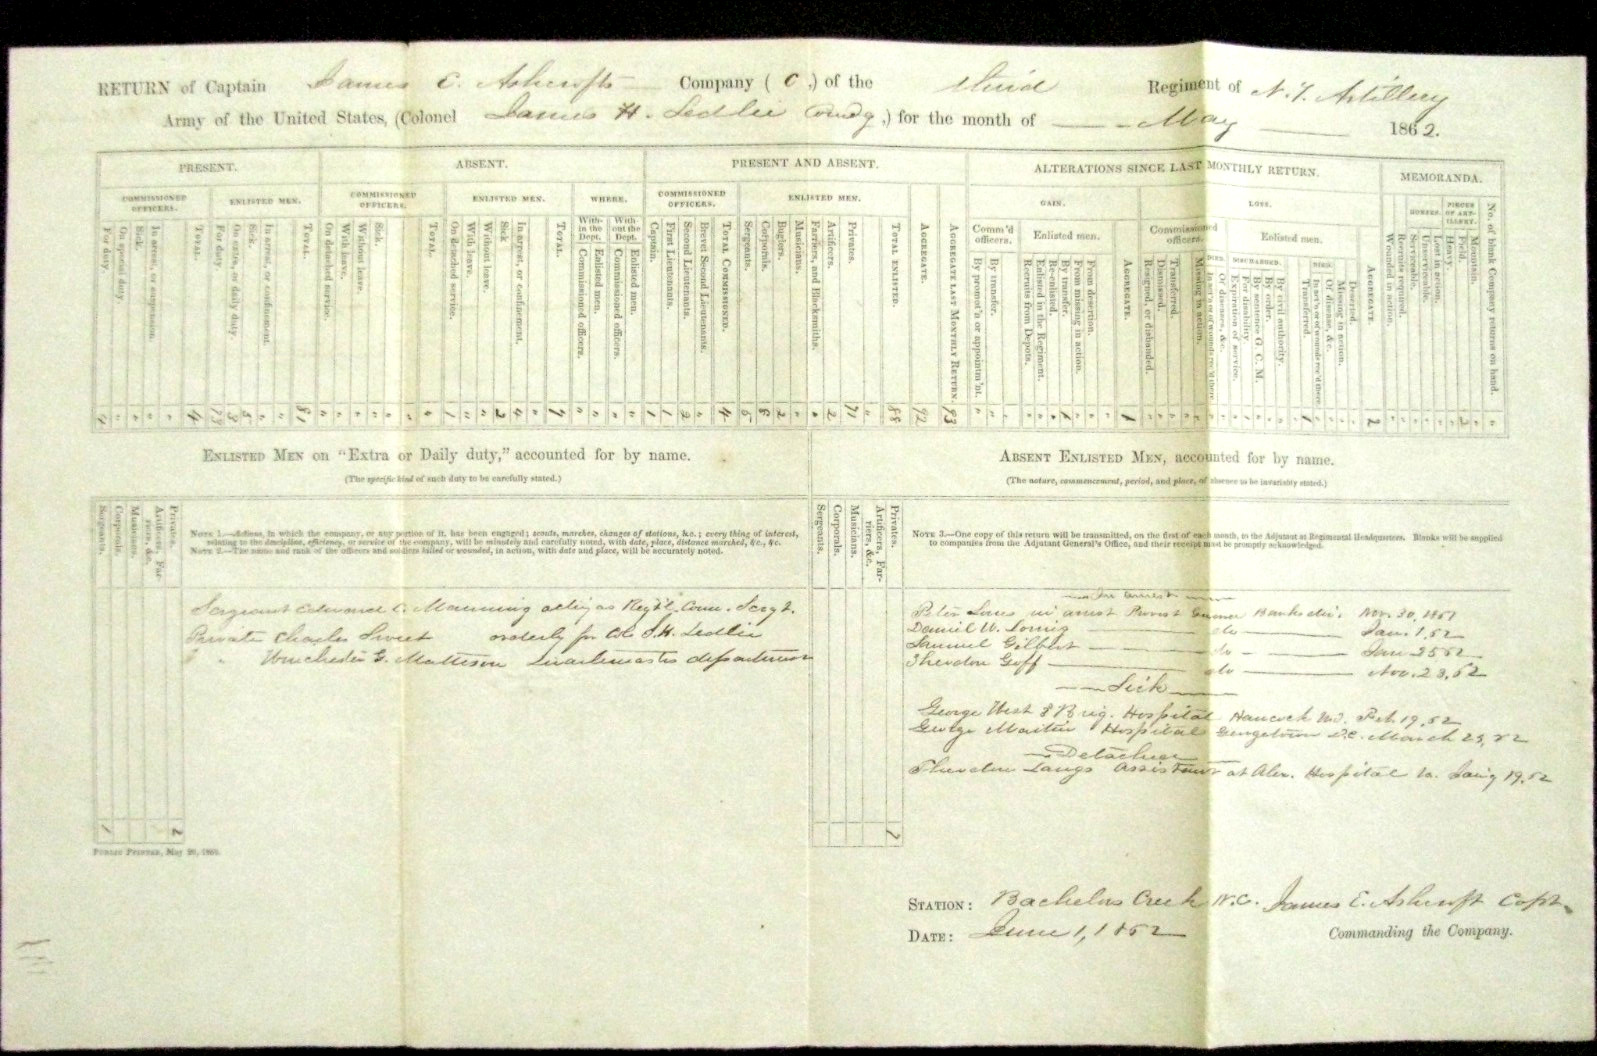 RETURN of Captain James E. Ashcrofts Company ( C ,) of the Third Regiment of N.Y. Artillery
Army of the United States, (Colonel James H. Ledlie Comdg ,) for the month of May 1862.
PRESENT. ABSENT. PRESENT AND ABSENT. ALTERATIONS SINCE LAST MONTHLY RETURN. MEMORANDA.
COMMISSIONED OFFICERS. ENLISTED MEN. COMMISSIONED OFFICERS. ENLISTED MEN. WHERE. COMMISSIONED OFFICERS. ENLISTED MEN. GAIN. LOSS. HORSES. PIECES OF ARTILLERY.
With-in the Dept. With-out the Dept. Comm'd officers. Enlisted men. Commissioned officers. Enlisted men.
DIED. DISCHARGED. DIED.
For duty.
On special duty.
Sick.
In arrest, or suspension.
TOTAL.
For duty.
On extra, or daily duty.
Sick.
In arrest, or confinement.
TOTAL.
On detached service.
With leave.
Without leave.
Sick.
TOTAL.
On detached service.
With leave.
Without leave.
Sick
In arrest, or confinement.
TOTAL.
Commissioned officers.
Enlisted men.
Commissioned officers.
Enlisted men.
Captain.
First Lieutenants.
Second Lieutenants.
Brevet Second Lieutenants.
TOTAL COMMISSIONED.
Sergeants.
Corporals.
Buglers.
Musicians.
Farriers, and Blacksmiths.
Artificers.
Privates.
TOTAL ENLISTED.
AGGREGATE.
AGGREGATE LAST MONTHLY RETURN.
By promot'n or appointm'nt.
By transfer.
Recruits from Depots.
Enlisted in the Regiment.
Re-enlisted.
By transfer.
From missing in action.
From desertion.
AGGREGATE.
Resigned, or disbanded.
Dismissed.
Transferred.
Missing in action.
In act'n or of wounds rec'd there
Of disease, &c.
Expiration of service.
For disability.
By sentence G. C. M.
By order.
By civil authority.
Transferred.
In act'n or of wounds rec'd there
Of disease, &c.
Missing in action.
Deserted.
AGGREGATE.
Wounded in action.
Recruits required.
Serviceable.
Unserviceable.
Lost in action.
Heavy.
Field.
Mountain.
No. of blank Company returns on hand.
4 4 3 5 81 1 2 4 7 1 1 2 4 5 8 2 2 71 88 92 93 1 1 1 2 2
ENLISTED MEN on "Extra or Daily duty," accounted for by name.
(The specific kind of such duty to be carefully stated.)
ABSENT ENLISTED MEN, accounted for by name.
(The nature, commencement, period, and place, of absence to be invariably stated.)
Sergeants.
Corporals.
Musicians.
Artificers, Farriers, &c.
Privates.
NOTE 1.—Actions, in which the company, or any portion of it, has been engaged; scouts, marches, changes of stations, &c.; every thing of interest,
relating to the discipline, efficiency, or service of the company, will be minutely and carefully noted, with date, place, distance marched, &c., &c.
NOTE 2.—The name and rank of the officers and soldiers killed or wounded, in action, with date and place, will be accurately noted.
Sergeants.
Corporals.
Musicians.
Artificers, Farriers, &c.
Privates.
NOTE 3.—One copy of this return will be transmitted, on the first of each month, to the Adjutant at Regimental Headquarters. Blanks will be supplied
to companies from the Adjutant General's Office, and their receipt must be promptly acknowledged.
Sergeant Edward C. Manning acting as Reg'tl Com. Sergt.
Private Charles Sweet orderly for Col. J.H. Ledlie
" " Winchester G. Matteson Quartermasters department
1 2
In arrest
Peter Lines in arrest Provost Banks div. Nov. 30, 1861
Daniel W. do Jan. 1, 62
Samuel Gilbert do Jan 25 62
Theodore Goff do Nov. 23, 62
Sick
George West Brig. Hospital Hancock Md. Feb. 19, 62
George Martin Hospital Georgetown D.C. March 25, 62
Detached
Theodore Lange Assistant at Alex. Hospital Va. 19, 62
7
PUBLIC PRINTER, May 20, 1861.
STATION: Bachelors Creek N.C. James E. Ashcroft Capt.
DATE: June 1, 1862 Commanding the Company.